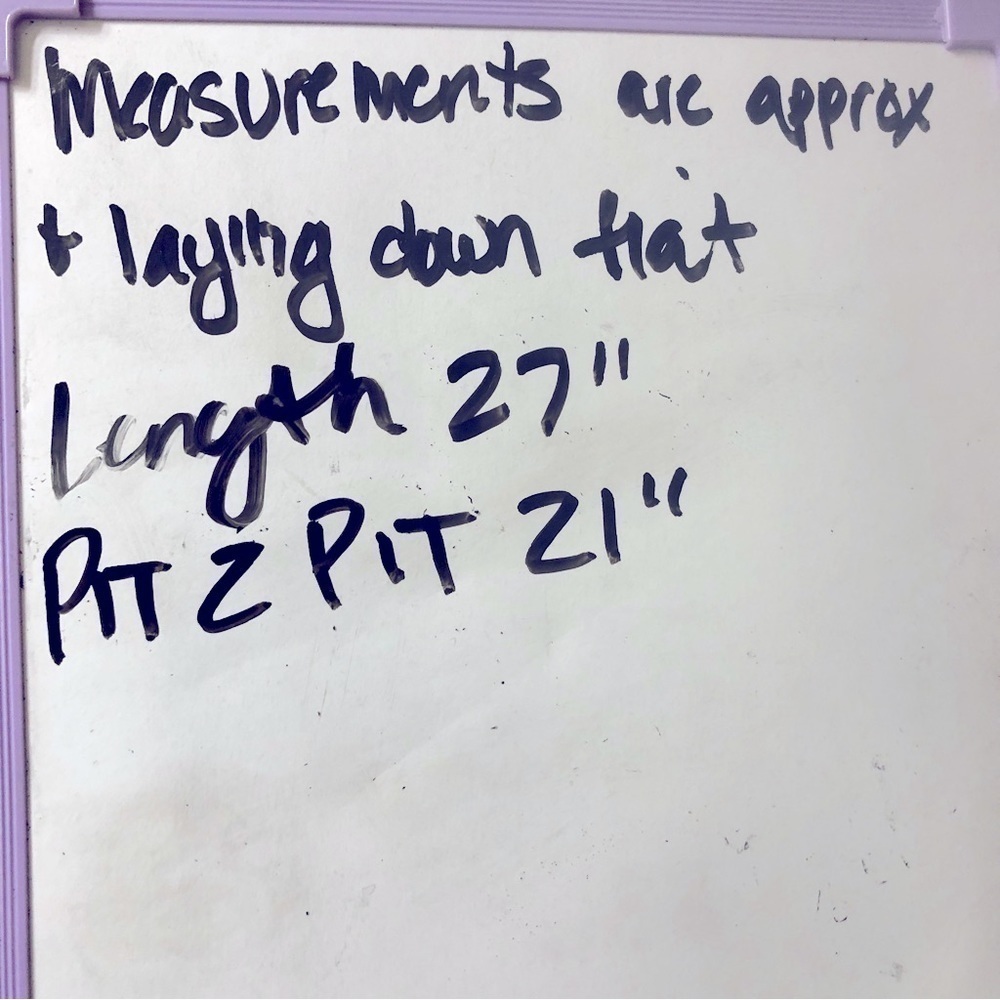 Measurements are approx
+ laying down flat
Length 27"
PIT 2 PIT 21"